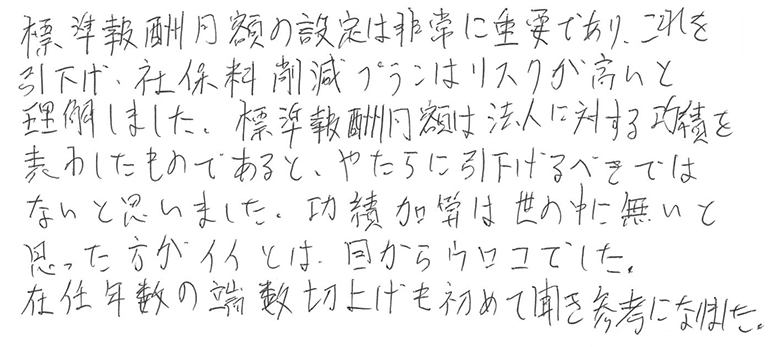 標準報酬月額の設定は非常に重要であり、これを
引下げ、社保料削減プランはリスクが高いと
理解しました。標準報酬月額は法人に対する功績を
表わしたものであると、やたらに引下げるべきでは
ないと思いました。功績加算は世の中に無いと
思った方がイイとは、目からウロコでした。
在任年数の端数切上げも初めて聞き参考になりました。